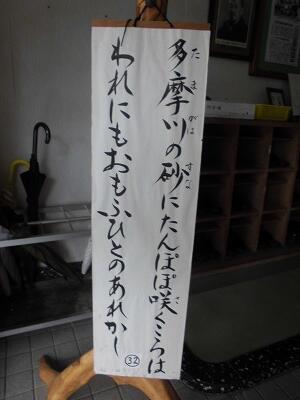 多摩川の砂にたんぽぽ咲くころは
たまがはすなさ
われにもおもふひとのあれかし
32